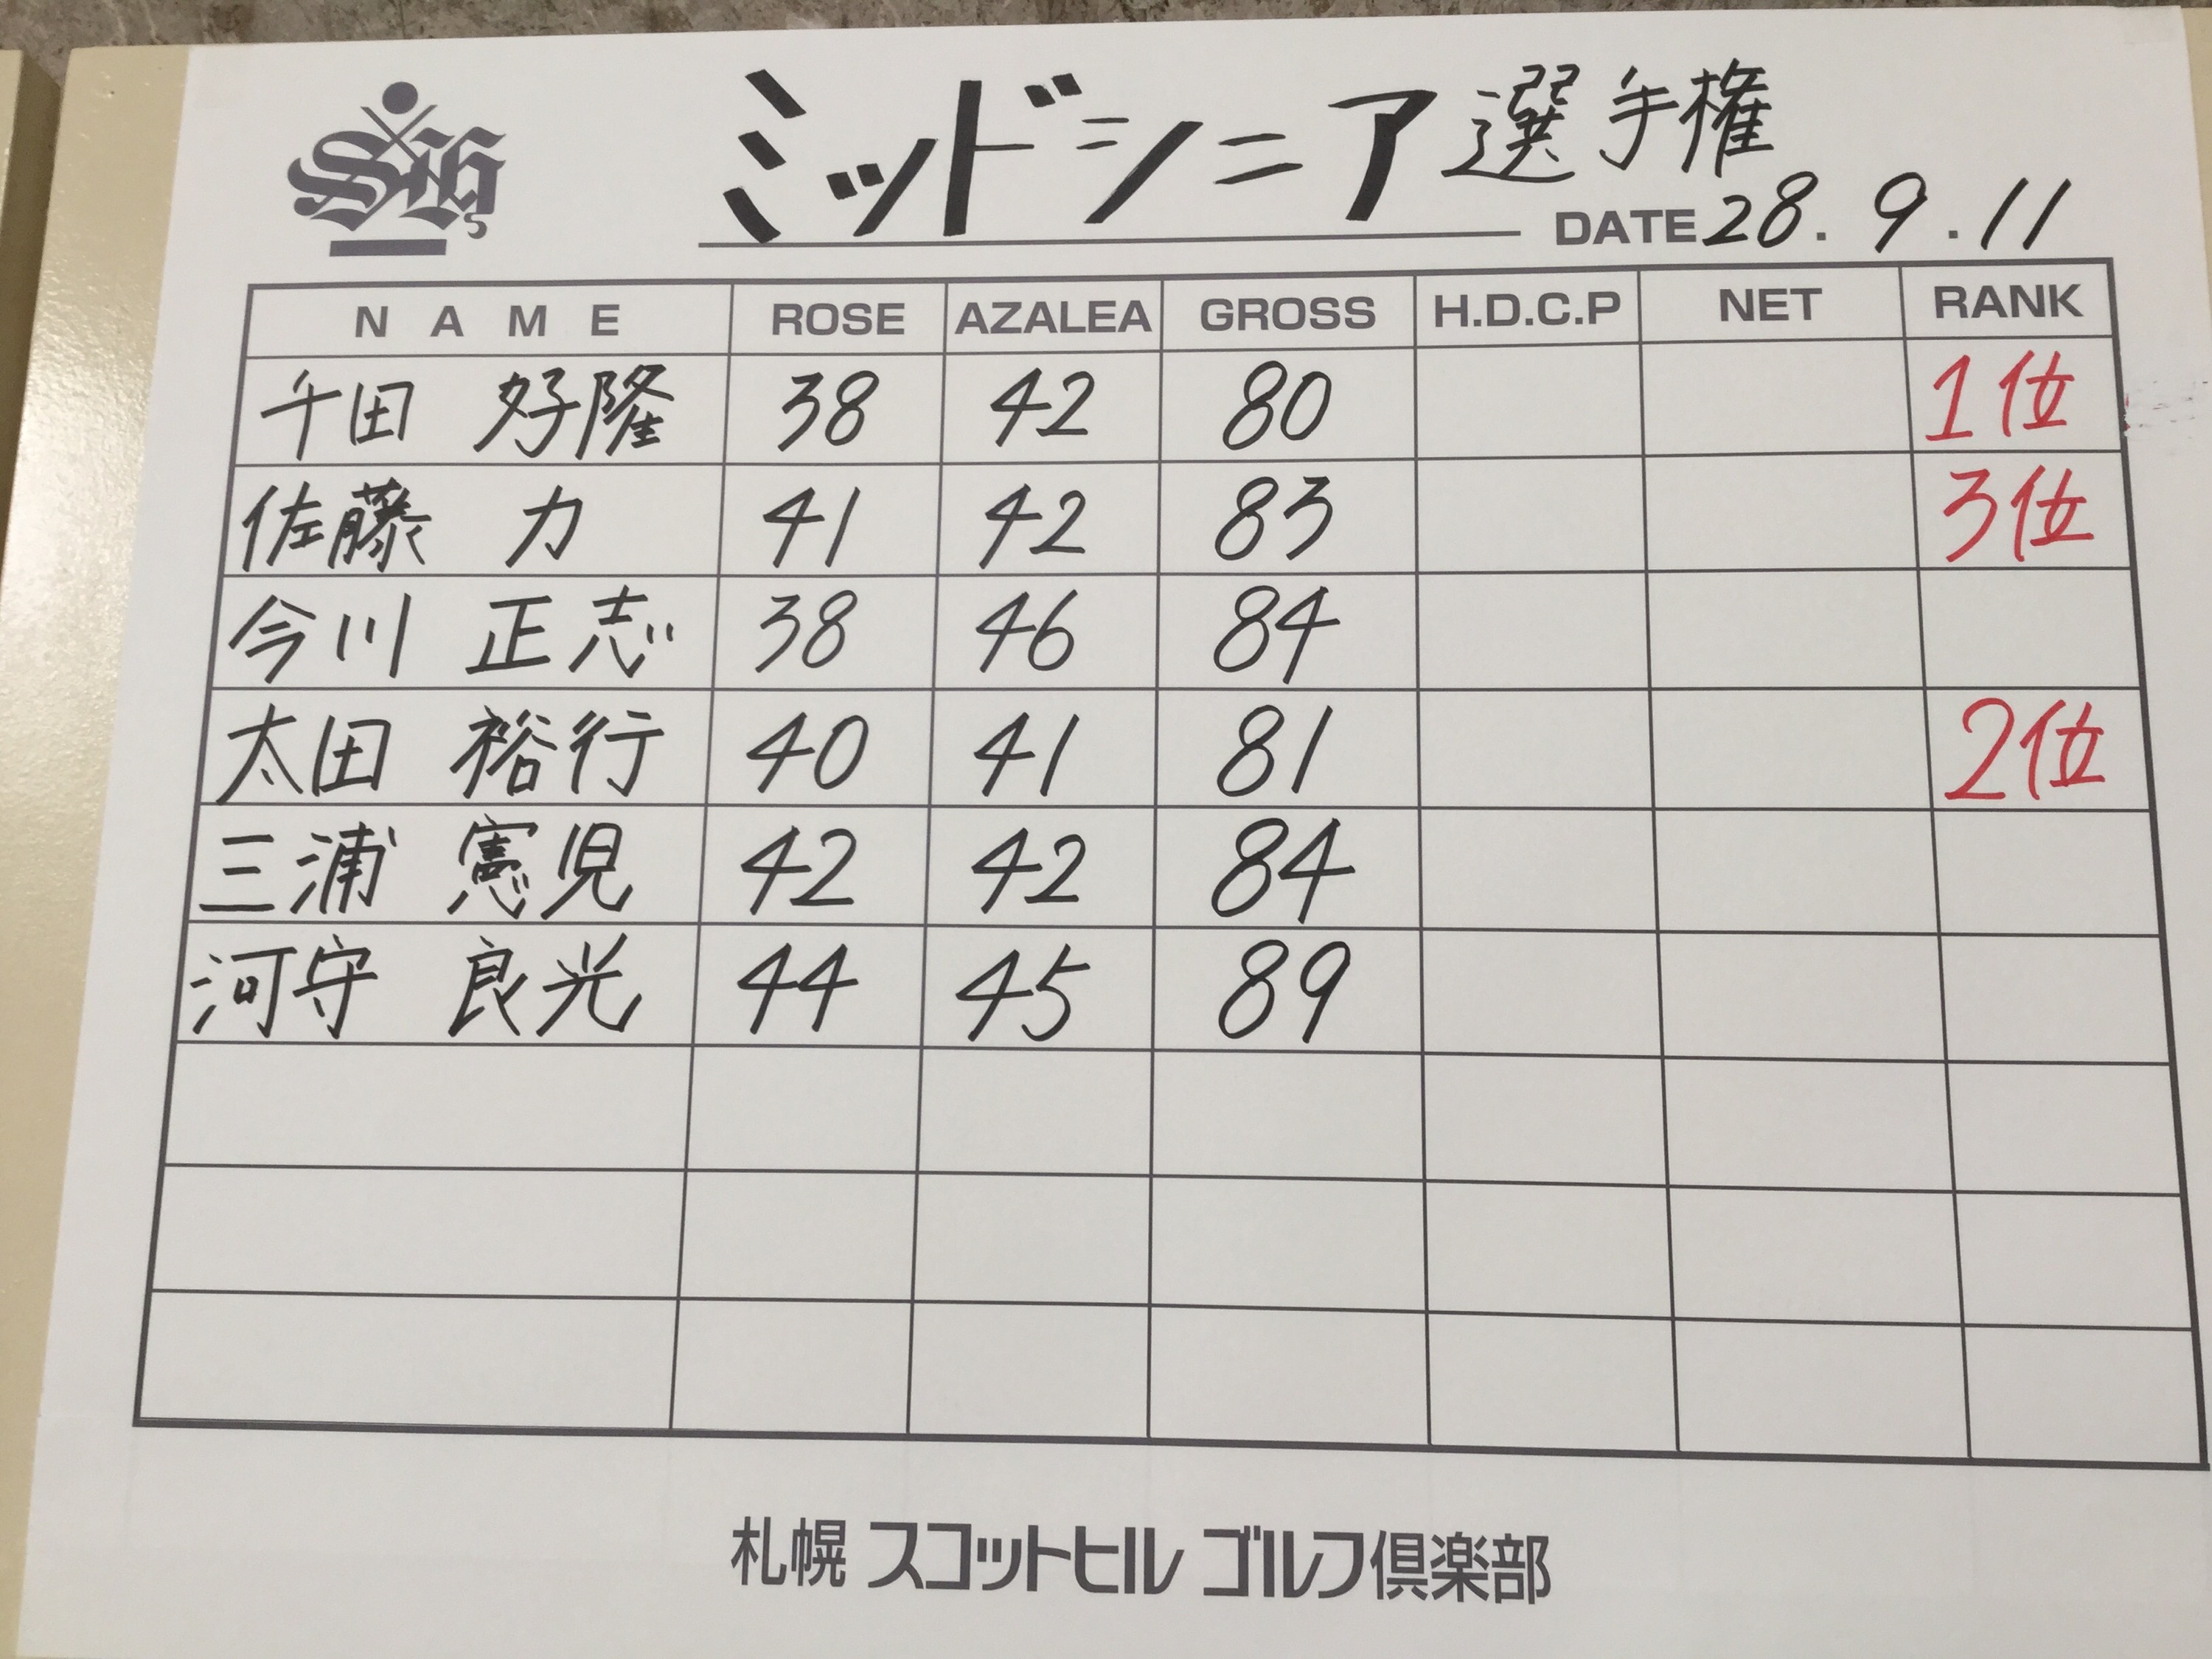 SHS
ミッドシニア選手権
DATE 28.9.11
NAME ROSE AZALEA GROSS H.D.C.P NET RANK
千田 好隆 38 42 80 1位
佐藤 力 41 42 83 3位
今川 正志 38 46 84
太田 裕行 40 41 81 2位
三浦 憲児 42 42 84
河守 良光 44 45 89
札幌 スコットヒル ゴルフ倶楽部